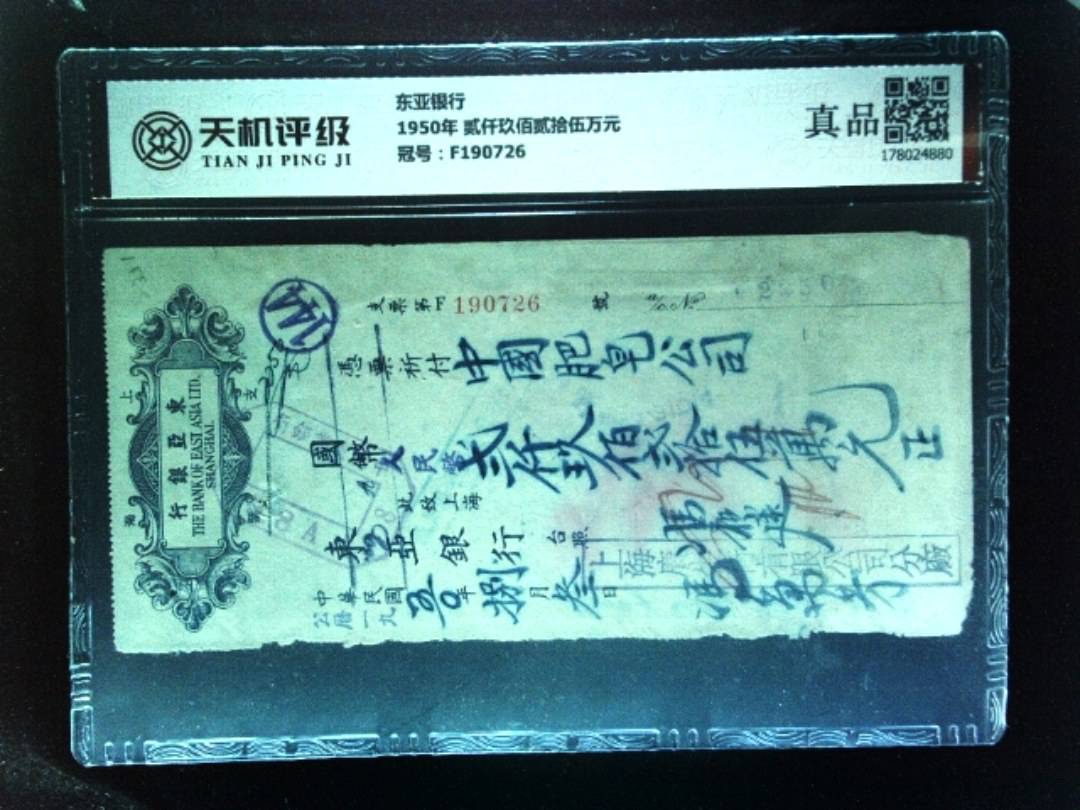 天机评级
TIAN JI PING JI
东亚银行
1950年 贰仟玖佰贰拾伍万元
冠号：F190726
真品
178024880
支票第F 190726 號
144
憑票祈付 中國肥皂公司
國幣 人民幣 貳仟玖佰貳拾伍萬元正
此致上海
東亞銀行 台照
中華民國
公曆一九五0年捌月叁日
東亞銀行
THE BANK OF EAST ASIA LTD.
SHANGHAI
上海支